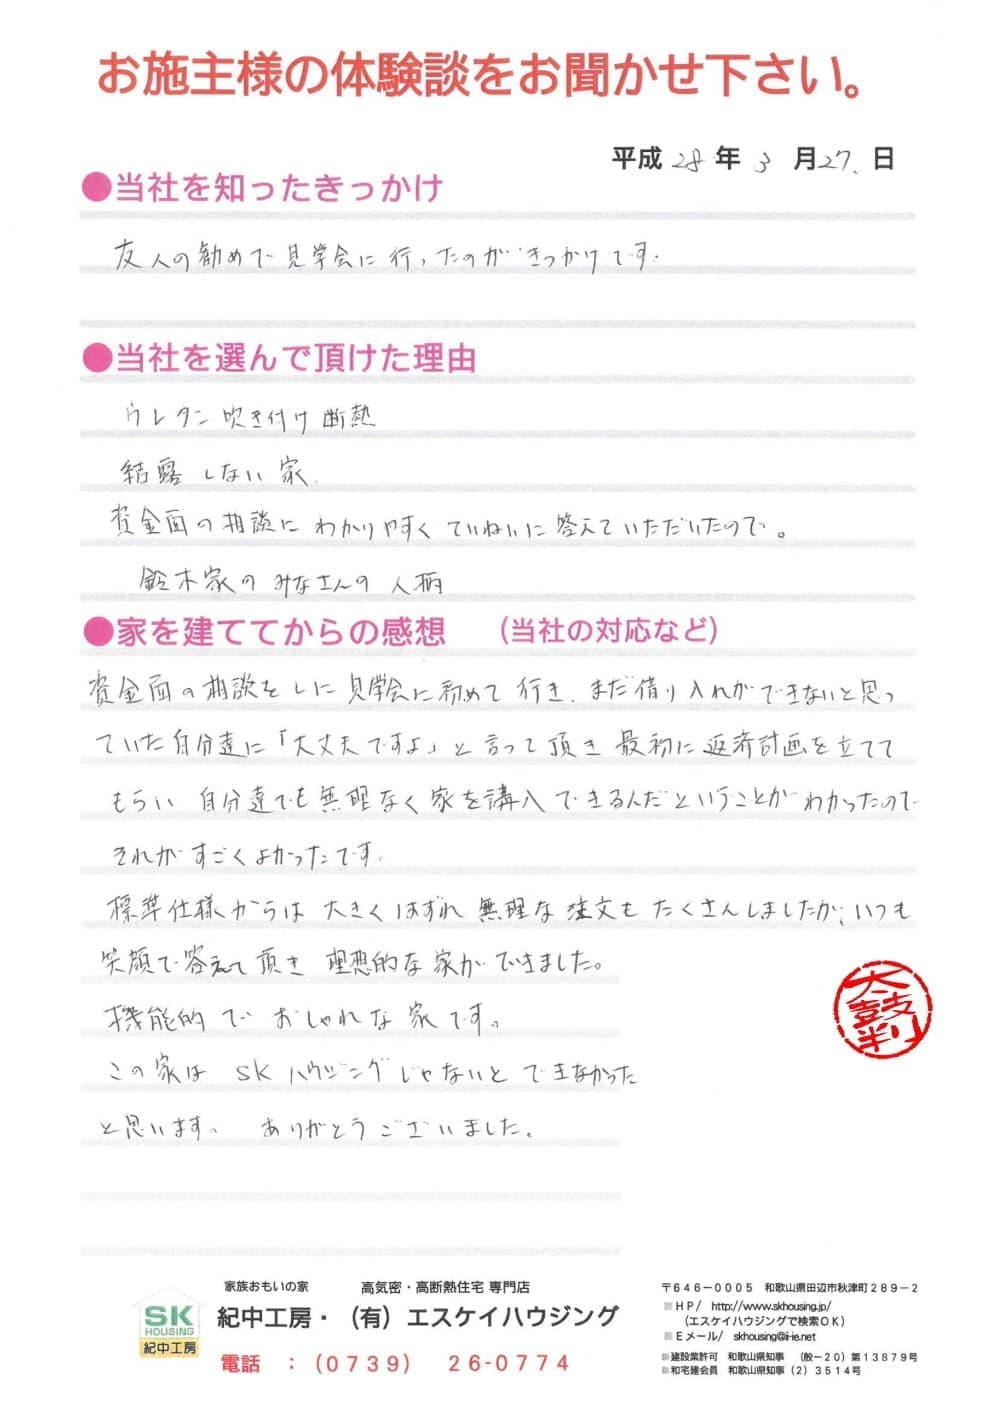 お施主様の体験談をお聞かせ下さい。
平成 28 年 3 月 27. 日
●当社を知ったきっかけ
友人の勧めで見学会に行ったのがきっかけです.
●当社を選んで頂けた理由
ウレタン吹き付け断熱
結露しない家.
資金面の相談にわかりやすくていねいに答えていただいたので。
鈴木家のみなさんの人柄
●家を建ててからの感想 (当社の対応など)
資金面の相談をしに見学会に初めて行き. まだ借り入れができないと思っ
ていた自分達に「大丈夫ですよ」と言って頂き最初に返済計画を立てて
もらい 自分達でも無理なく家を購入できるんだということがわかったので
それがすごくよかったです.
標準仕様からは大きくはずれ無理な注文もたくさんしましたが、いつも
笑顔で答えて頂き理想的な家ができました。
機能的でおしゃれな家です。
この家は SKハウジングじゃないとできなかった
と思います。 ありがとうございました。
太鼓判
SK HOUSING 紀中工房
家族おもいの家 高気密・高断熱住宅 専門店
紀中工房・(有)エスケイハウジング
電話 :(0739) 26-0774
〒646-0005 和歌山県田辺市秋津町289-2
HP/ http://www.skhousing.jp/
(エスケイハウジングで検索OK)
Eメール/ skhousing@ii-ie.net
建設業許可 和歌山県知事 (般-20)第13879号
和宅建会員 和歌山県知事(2)3514号